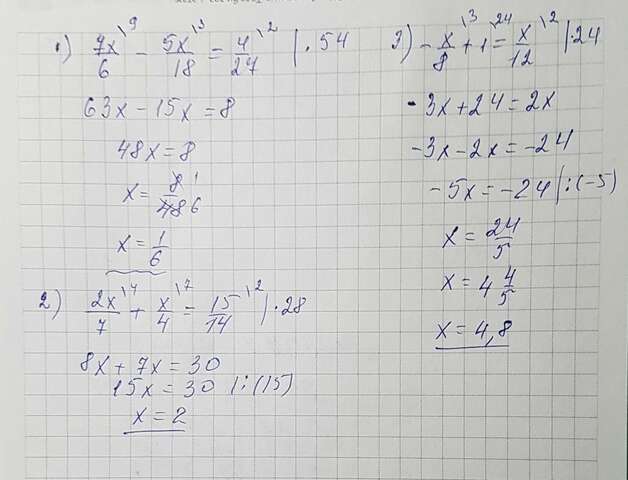 1) 7x/6 \9 − 5x/18 \3 = 4/27 \2 | · 54
63x − 15x = 8
48x = 8
x = 8/48 1 6
x = 1/6
2) 2x/7 \4 + x/4 \7 = 15/14 \2 | · 28
8x + 7x = 30
15x = 30 | : (15)
x = 2
3) − x/8 \3 + 1 \24 = x/12 \2 | · 24
-3x + 24 = 2x
-3x − 2x = −24
−5x = −24 | : (−5)
x = 24/5
x = 4 4/5
x = 4,8